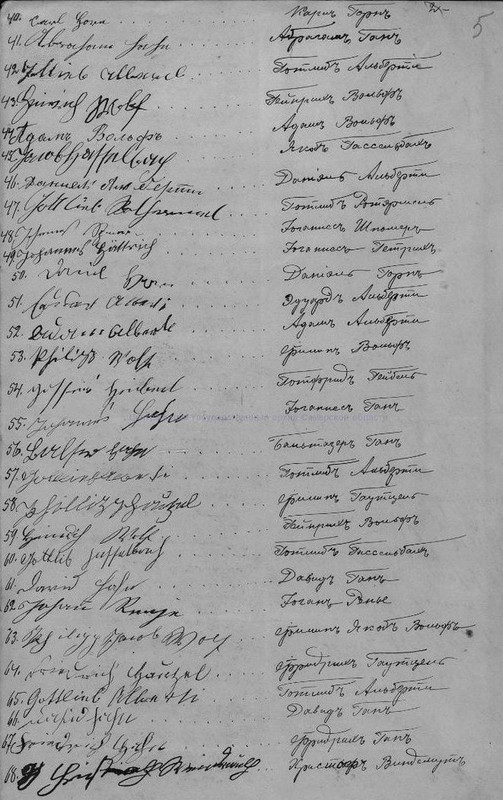 40. Carl Horn . . . Карлъ Горнъ
5
41. Abraham Hahn . . . Абрагамъ Ганъ
42. Gottlieb Alberti . . . Готлибъ Альберти
43. Heinrich Wolf . . . Гейнрихъ Вольфъ
44. Адамъ Вольфъ . . . Адамъ Вольфъ
45. Jacob Hasselbach . . . Якобъ Гассельбахъ
46. Daniel . . . Даніель Альберти
47. Gottlieb Rothermel . . . Готлибъ Ротермель
48. Johannes . . . Іоганнесъ
49. Johannes Göttrich . . . Іоганнесъ Гетрихъ
50. David Horn . . . Даніель Горнъ
51. Eduard Alberti . . . Эдуардъ Альберти
52. Adam Alberti . . . Адамъ Альберти
53. Philipp Wolf . . . Филипъ Вольфъ
54. Gottfried Heidel . . . Готфридъ Гейдель
55. Johannes Hahn . . . Іоганнесъ Ганъ
56. Balthser Hahn . . . Бальтазеръ Ганъ
57. Gottlieb Alberti . . . Готлибъ Альберти
58. Philipp Häutzel . . . Филипъ Гаутцель
59. Heinrich Wolf . . . Гейнрихъ Вольфъ
60. Gottlieb Hasselbach . . . Готлибъ Гассельбахъ
61. David Hahn . . . Давидъ Ганъ
62. Johann . . . Іоганъ
63. Philipp Jacob Wolf . . . Филипъ Якобъ Вольфъ
64. Friedrich Häutzel . . . Фридрихъ Гаутцель
65. Gottlieb Alberti . . . Готлибъ Альберти
66. David Hahn . . . Давидъ Ганъ
67. Friedrich Hahn . . . Фридрихъ Ганъ
68. Christoph . . . Христофъ Виндемутъ